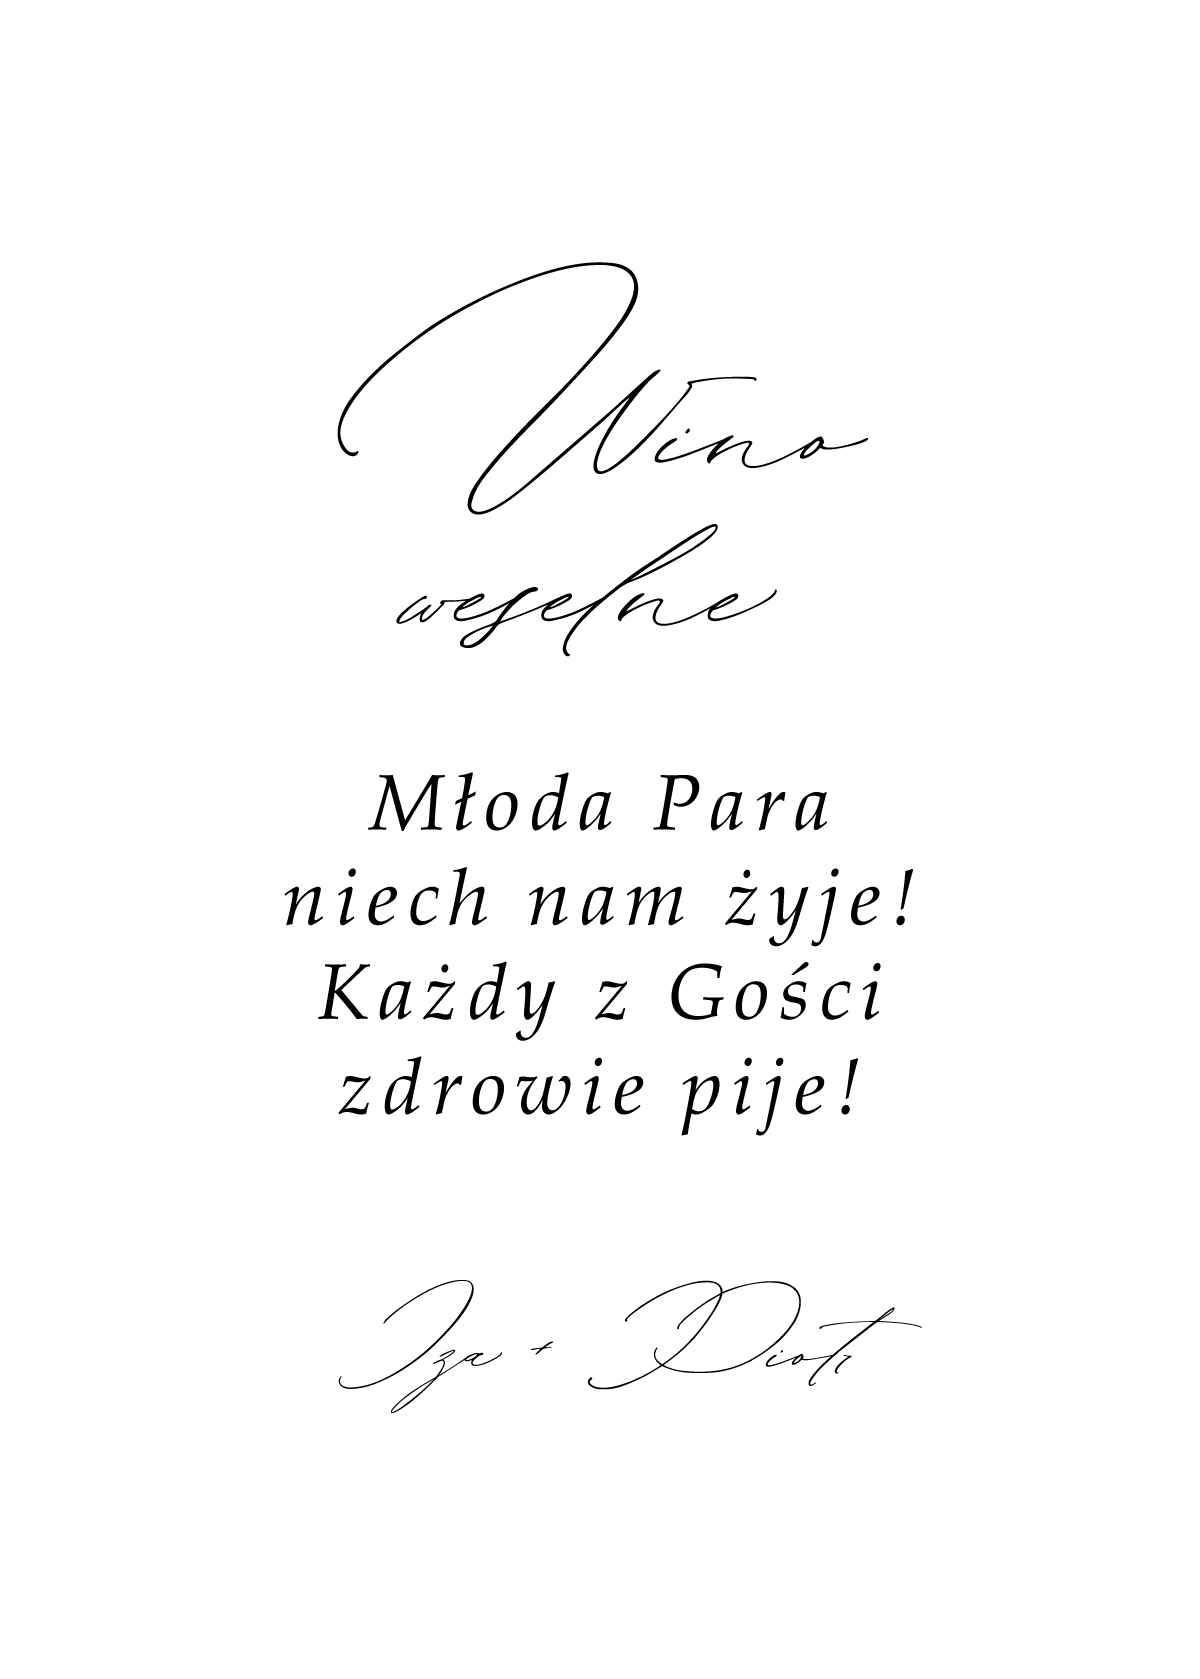 Wino
weselne
Młoda Para
niech nam żyje!
Każdy z Gości
zdrowie pije!
Iza + Piotr